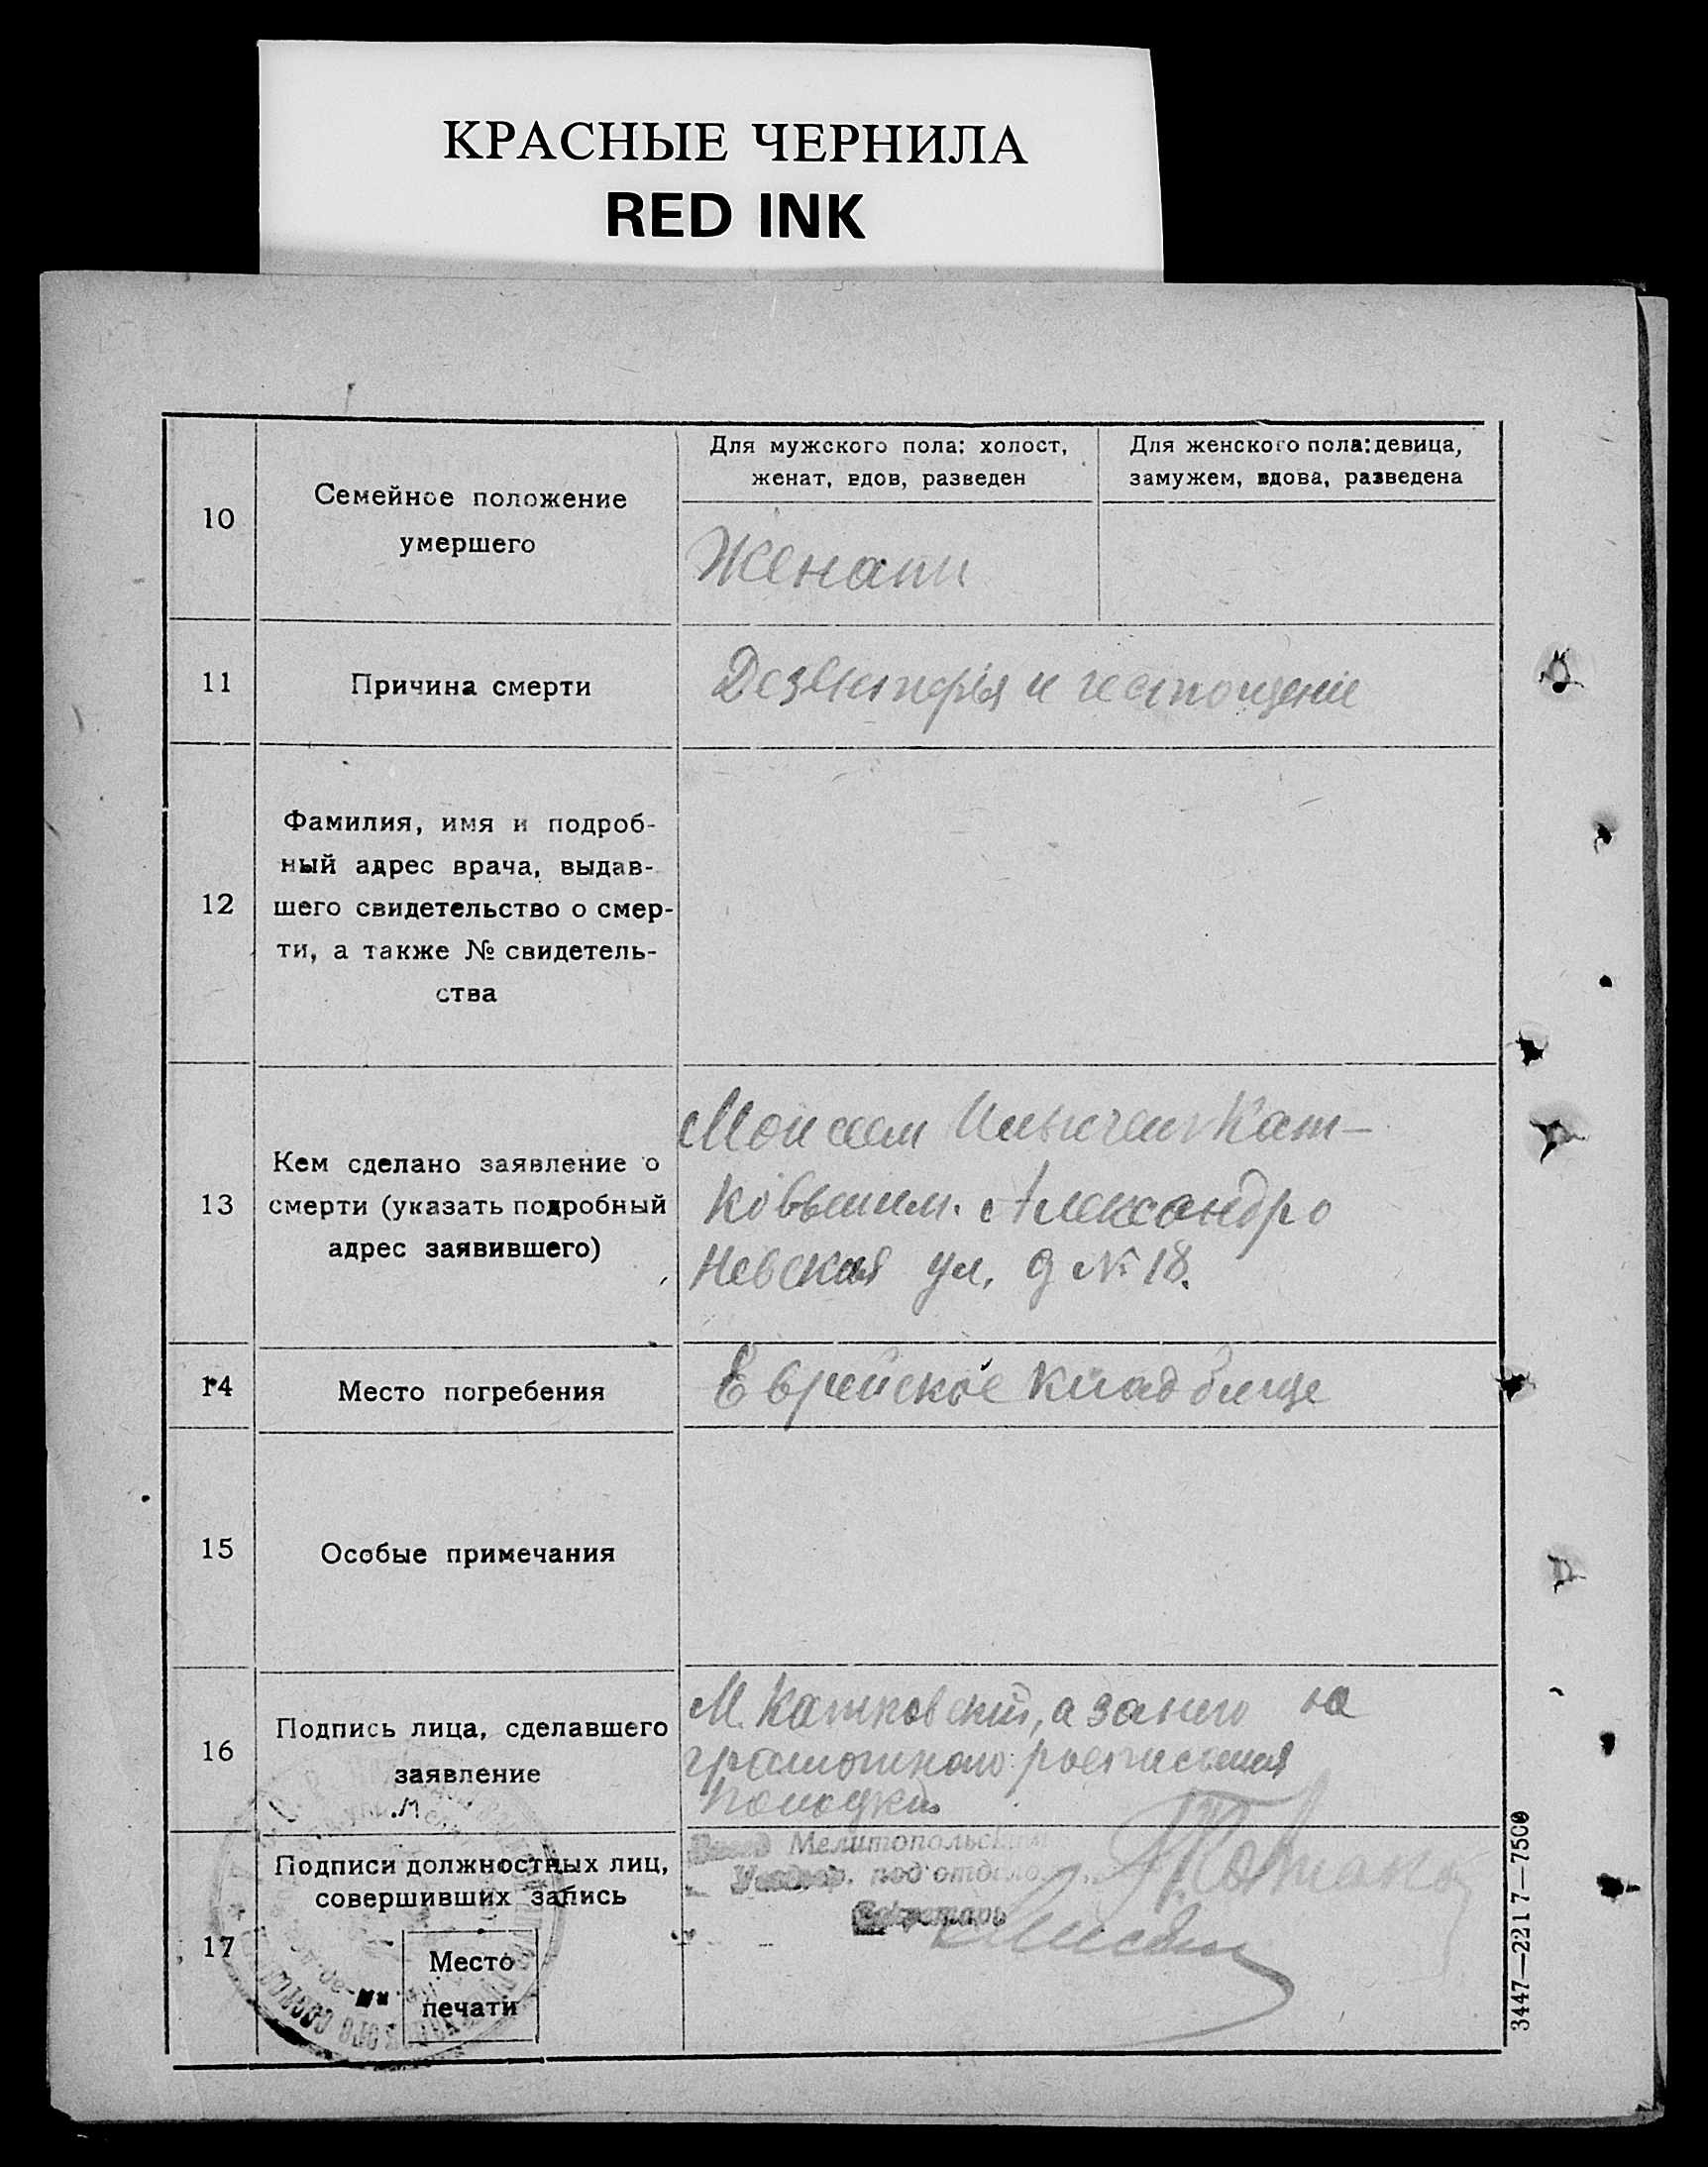 КРАСНЫЕ ЧЕРНИЛА
RED INK
10
Семейное положение
умершего
Для мужского пола: холост,
женат, вдов, разведен
Для женского пола: девица,
замужем, вдова, разведена
Женат
11
Причина смерти
Дезентерія и истощеніе
12
Фамилия, имя и подроб-
ный адрес врача, выдав-
шего свидетельство о смер-
ти, а также № свидетель-
ства
13
Кем сделано заявление о
смерти (указать подробный
адрес заявившего)
Моисеем Ильичем Кат-
ковским. Александро
Невская ул. д № 18.
14
Место погребения
Еврейское кладбище
15
Особые примечания
16
Подпись лица, сделавшего
заявление
М. Катковский, а за него
17
Подписи должностных лиц,
совершивших запись
Место
печати
Мелитопольским
под'отдело
Секретарь
3447—2217—7500